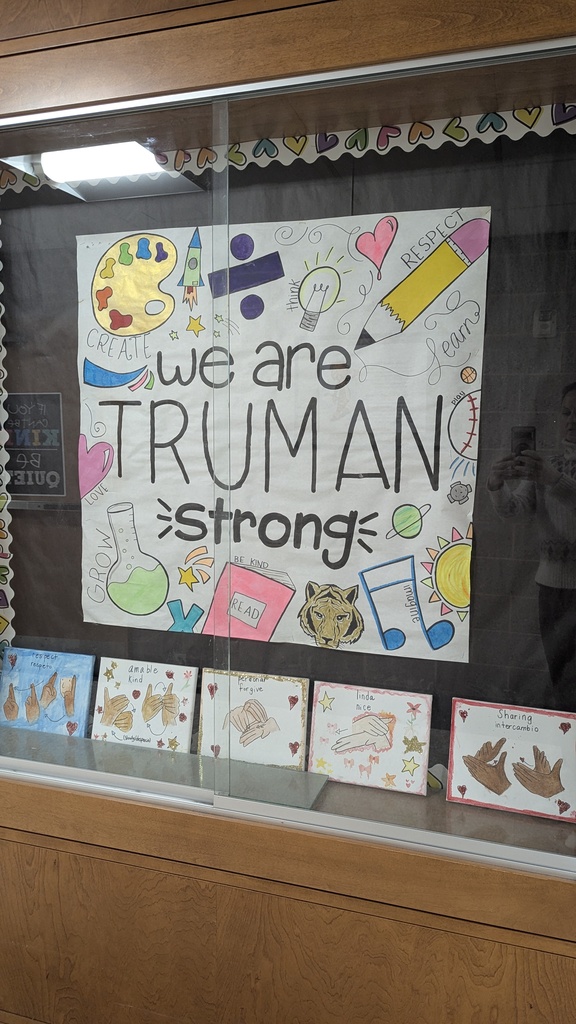 RESPECT
think
Learn
CREATE
we are
play
TRUMAN
LOVE
strong
GROW
BE KIND
READ
imagine
IF YOU
CAN'T BE
KIND
BE
QUIET
respect
respeto
amable
kind
forgive
linda
nice
Sharing
intercambio